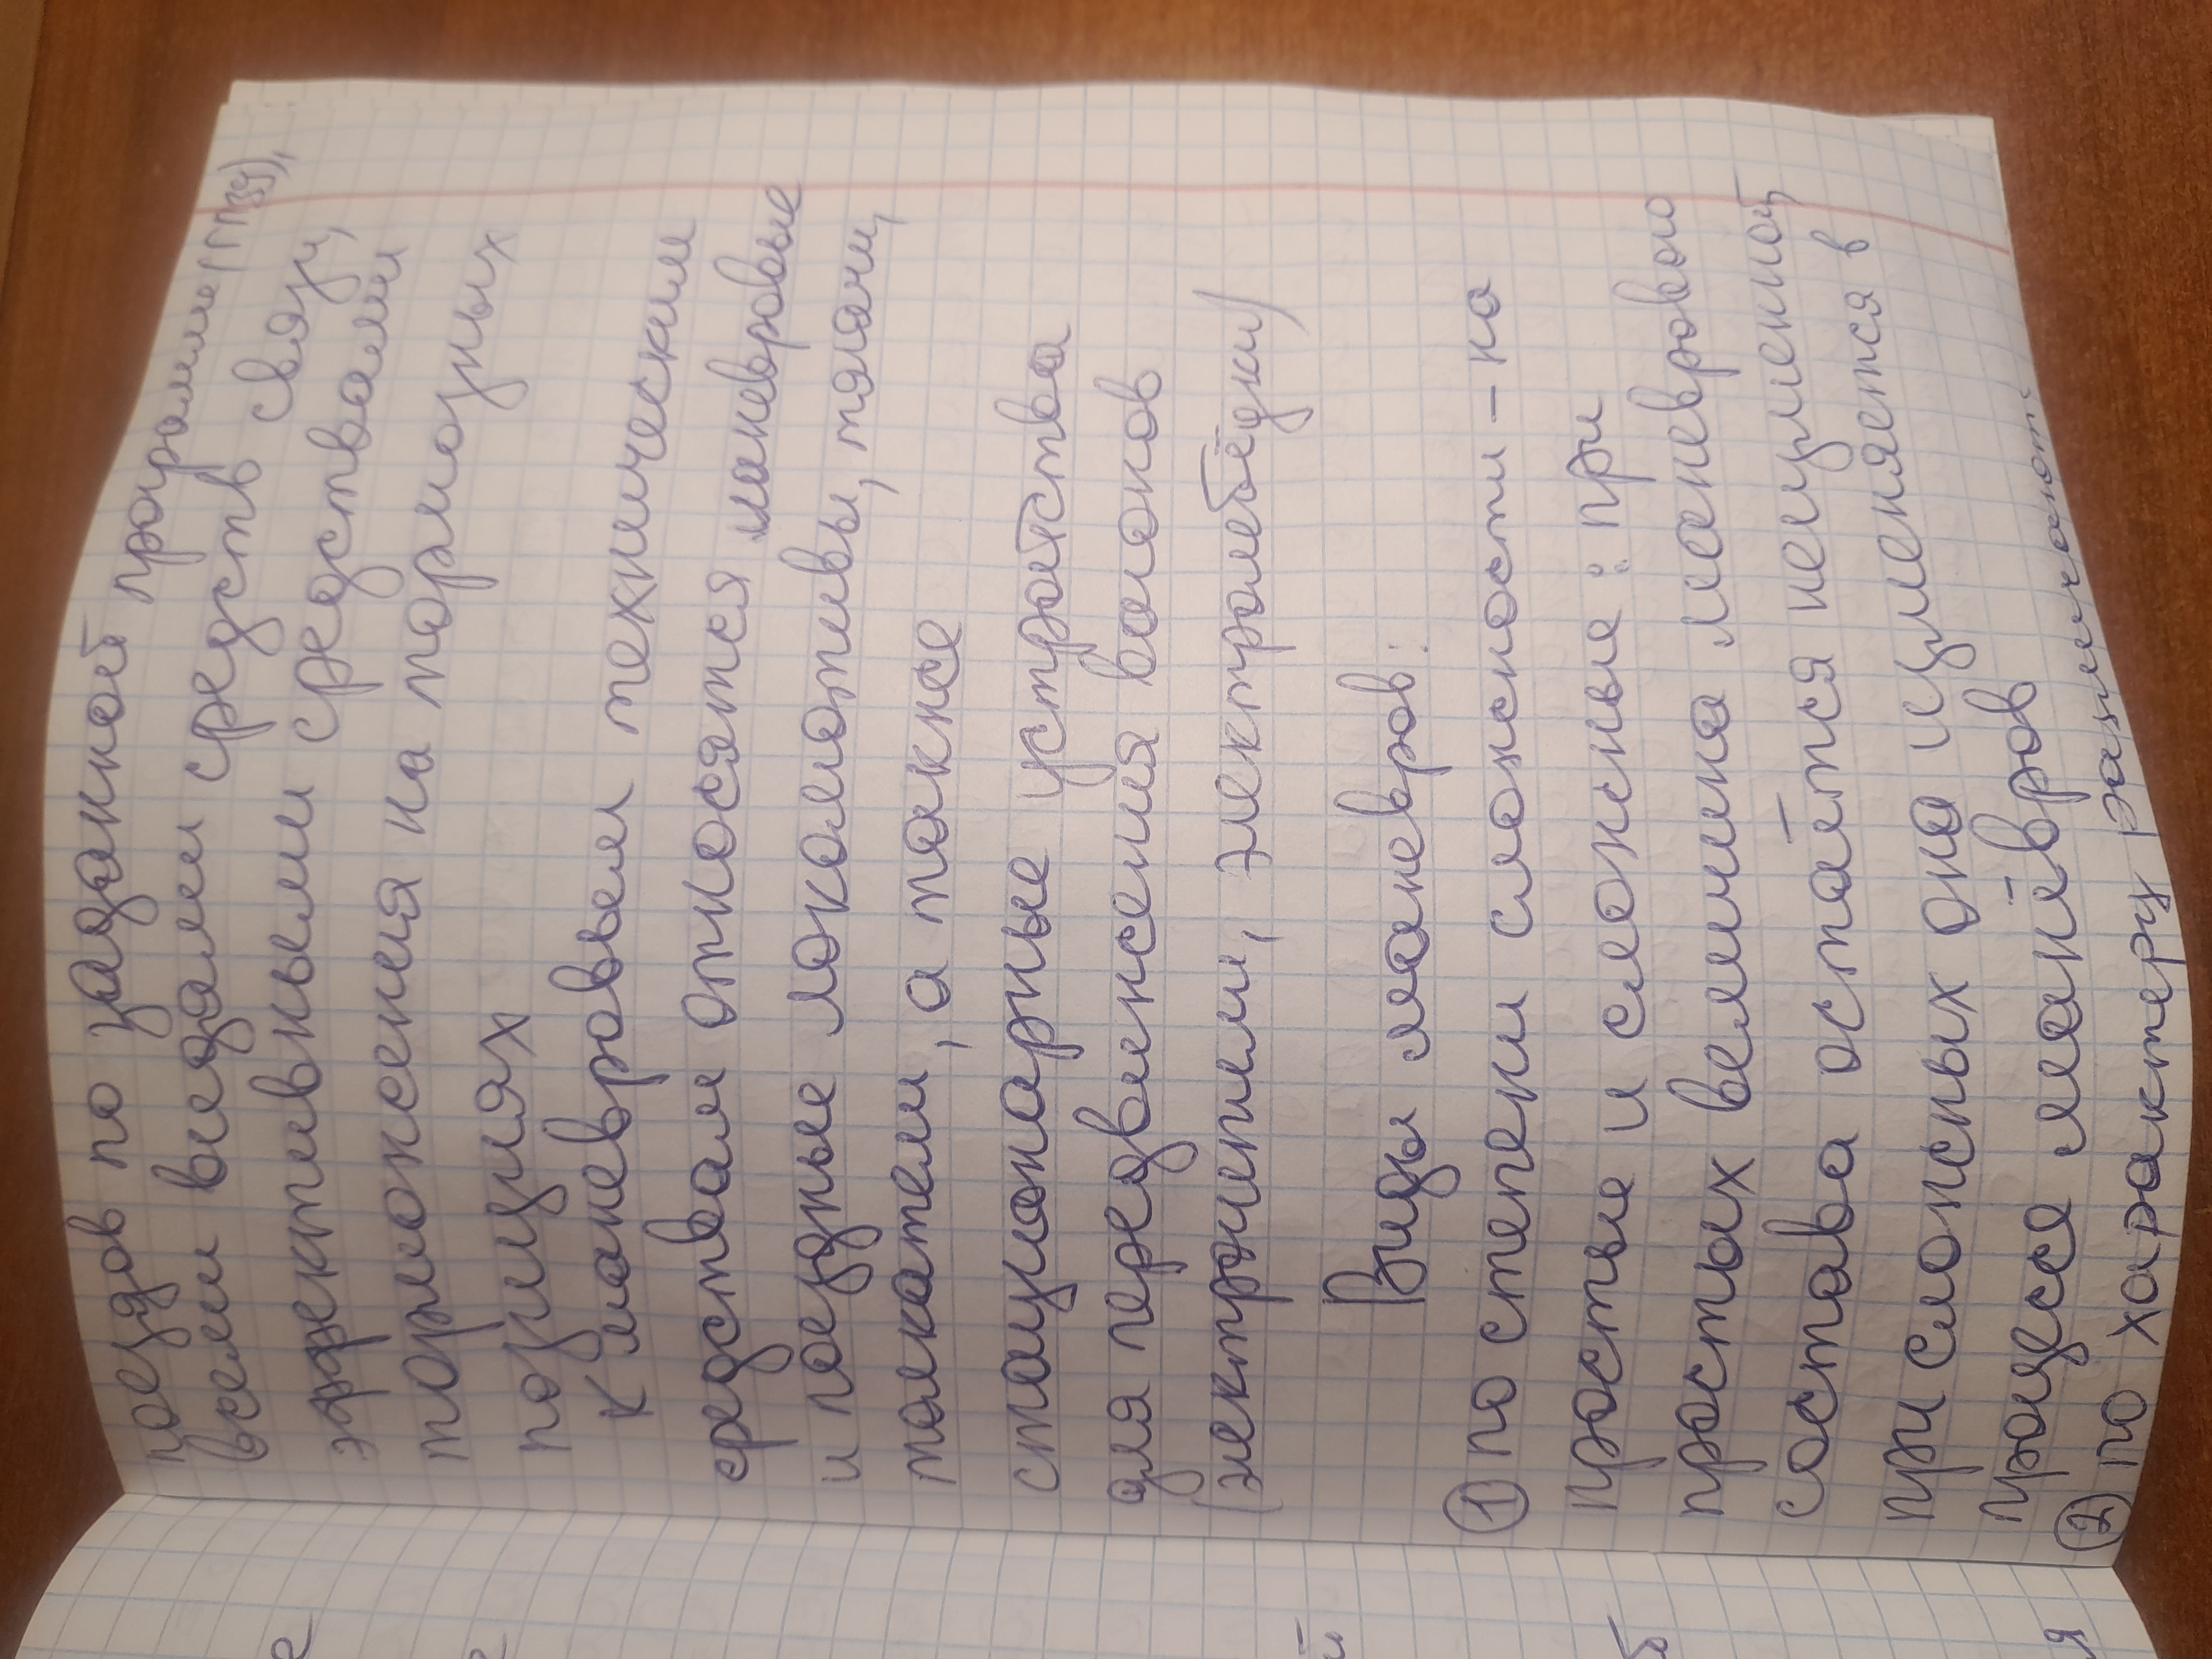 поездов по заданной программе (ГПЗУ),
всеми видами средств связи,
эффективными средствами
торможения на тормозных
позициях
К маневровым техническим
средствам относятся маневровые
и поездные локомотивы, тягачи,
толкатели, а также
стационарные устройства
для передвижения вагонов
(электрошпили, электролебёдки)
Виды маневров:
① по степени сложности – на
простые и сложные: при
простых величина маневрового
состава остаётся неизменной,
при сложных она изменяется в
процессе манёвров
② по характеру различают:
е
е
й
б
я